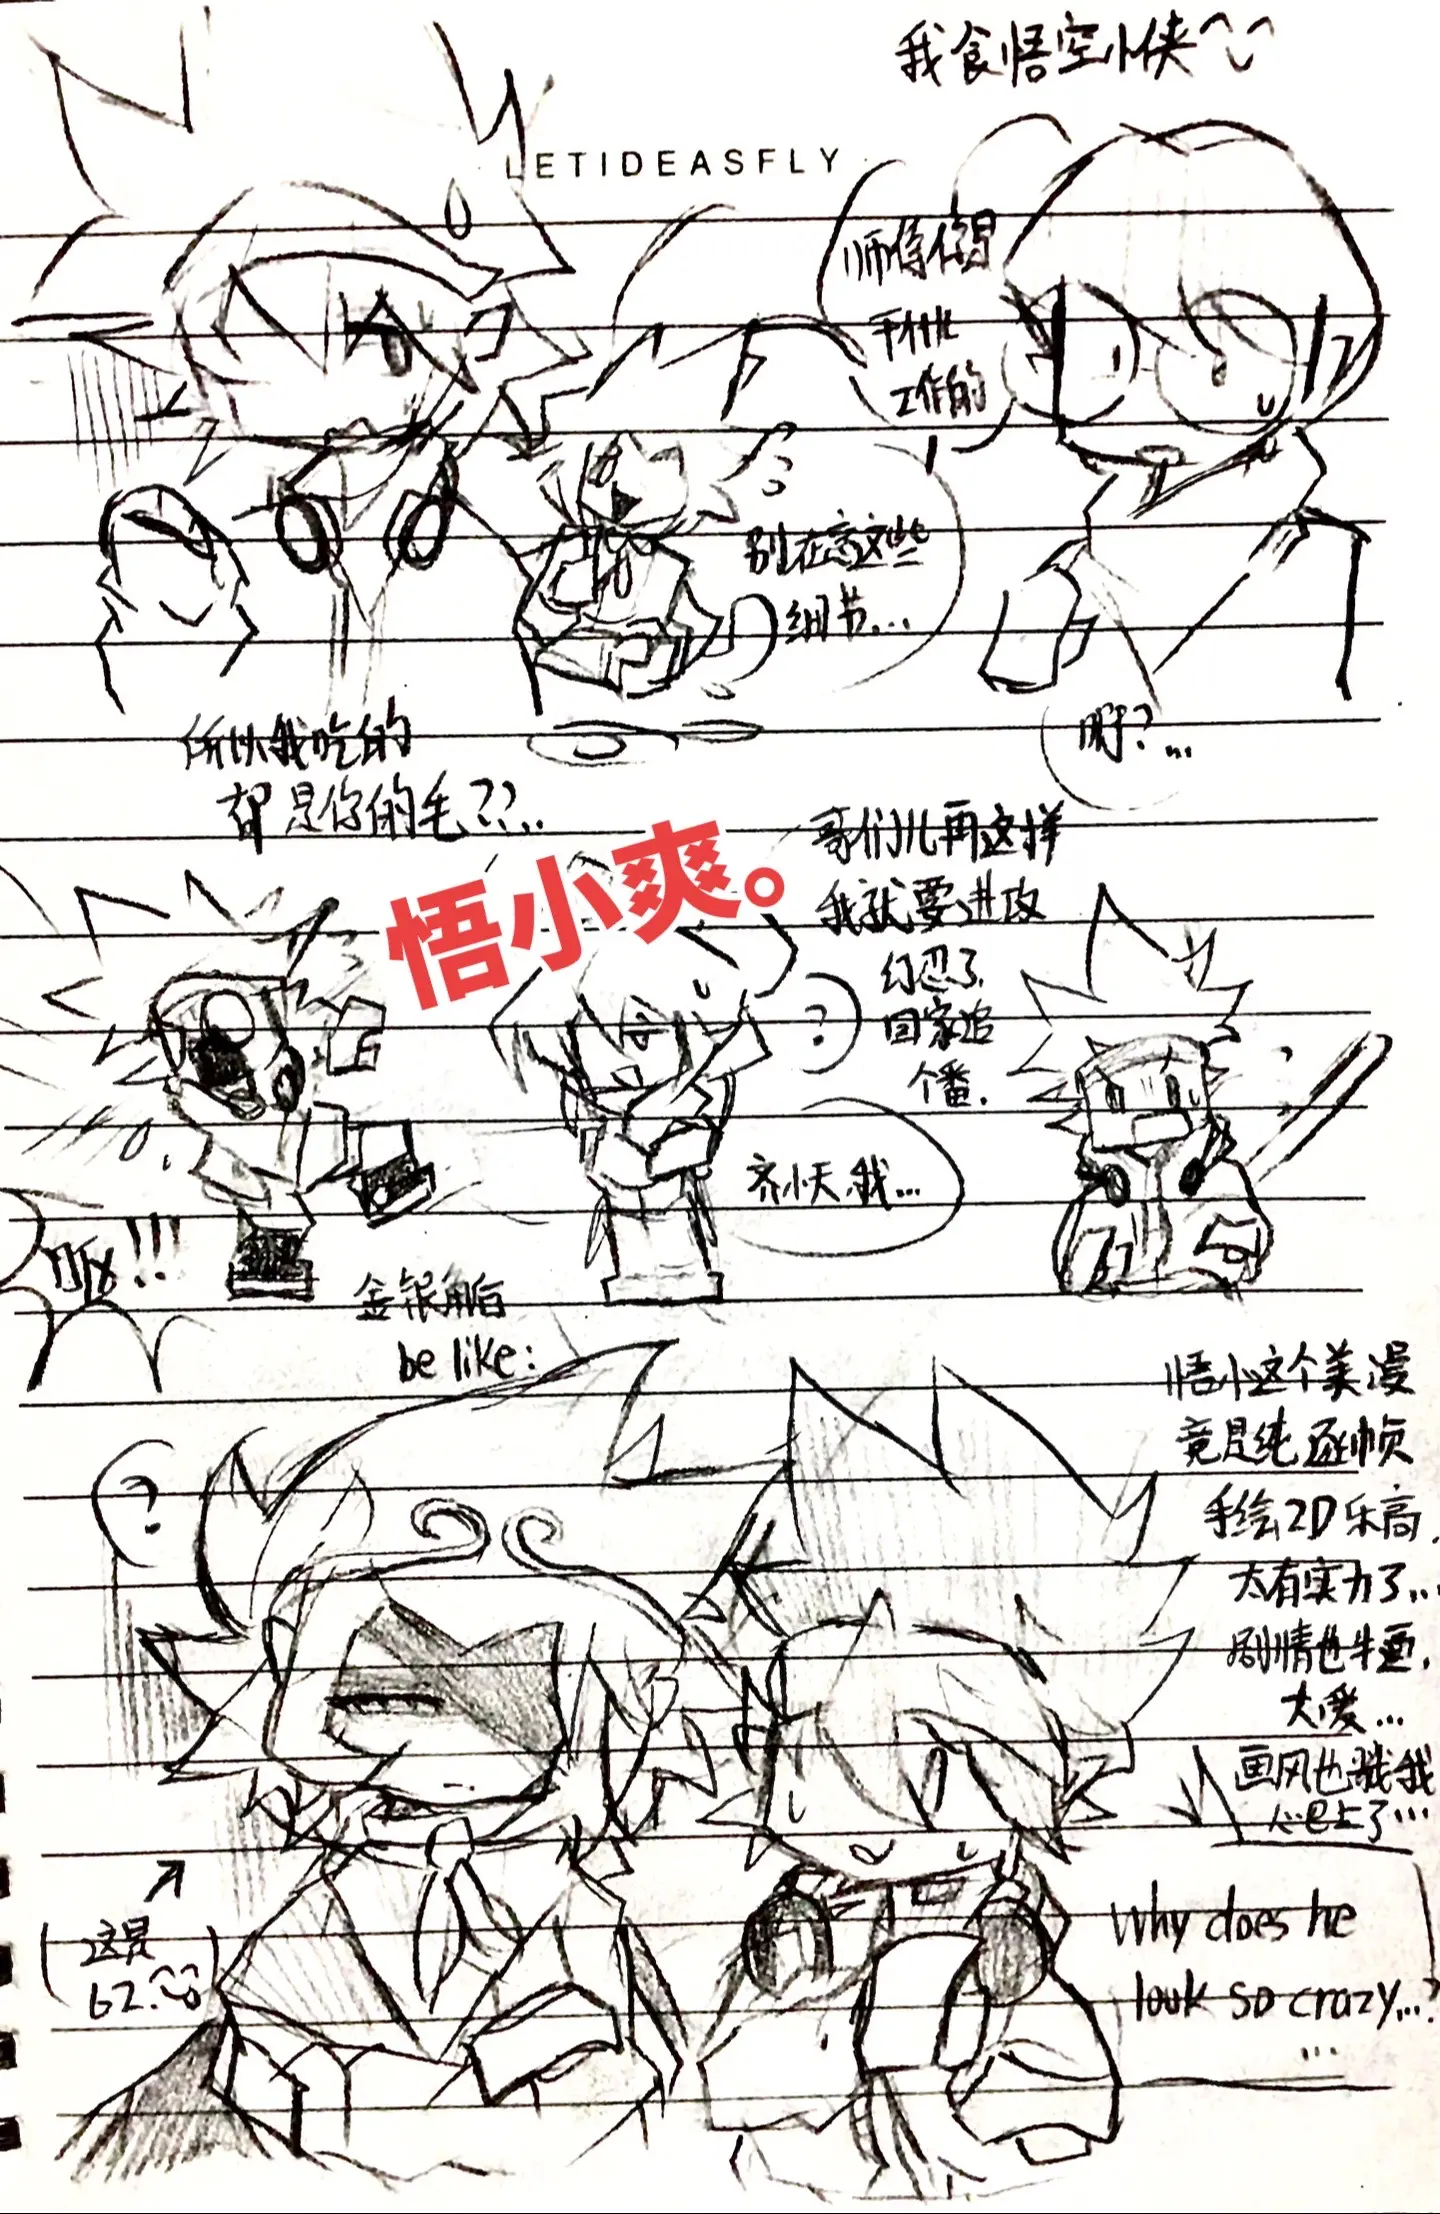 我食悟空小侠
LETIDEASFLY
师傅你是
干什么
工作的
别在意这些
细节...
所以我吃的
都是你的毛??...
啊?...
悟小爽。
哥们儿再这样
我就要进攻
幻忍了
回家追
个番.
?
齐小天,我...
!!!
金银角后
be like:
?
悟小这个美漫
竟是纯逐帧
手绘2D乐高.
太有实力了...
剧情也牛逼.
大爱...
画风也戳我
心巴上了...
这是
62.
Why does he
look so crazy...?
...